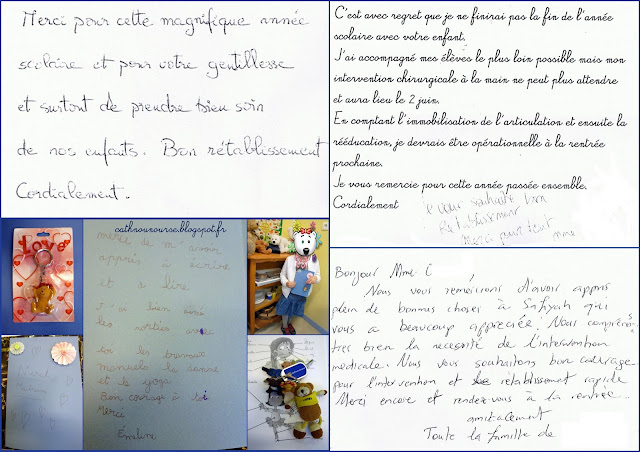 Merci pour cette magnifique année
scolaire et pour votre gentillesse
et surtout de prendre bien soin
de nos enfants. Bon rétablissement
Cordialement.
C'est avec regret que je ne finirai pas la fin de l'année
scolaire avec votre enfant.
J'ai accompagné mes élèves le plus loin possible mais mon
intervention chirurgicale à la main ne peut plus attendre
et aura lieu le 2 juin.
En comptant l'immobilisation de l'articulation et ensuite la
rééducation, je devrais être opérationnelle à la rentrée
prochaine.
Je vous remercie pour cette année passée ensemble.
Cordialement
je vous souhaite bon
Rétablissement
Merci pour tout mme
Love
cathnounourse.blogspot.fr
merci de m'avoir
appris à écrire
et a lire
j'ai bien aimé
les sorties avec
les travaux
manuels la danse
et le yoga
Bon courage à toi
Merci
Émeline
Bonjour Mme C
Nous vous remercions d'avoir appris
plein de bonnes choses à Safiyah qui
vous a beaucoup appreciée. Nous comprenons
tres bien la necesité de l'intervention
medicale. Nous vous souhaitons bon courage
pour l'intervention et retablissement rapide
Merci encore et rendez-vous à la rentrée.
amicalement
Toute la famille de